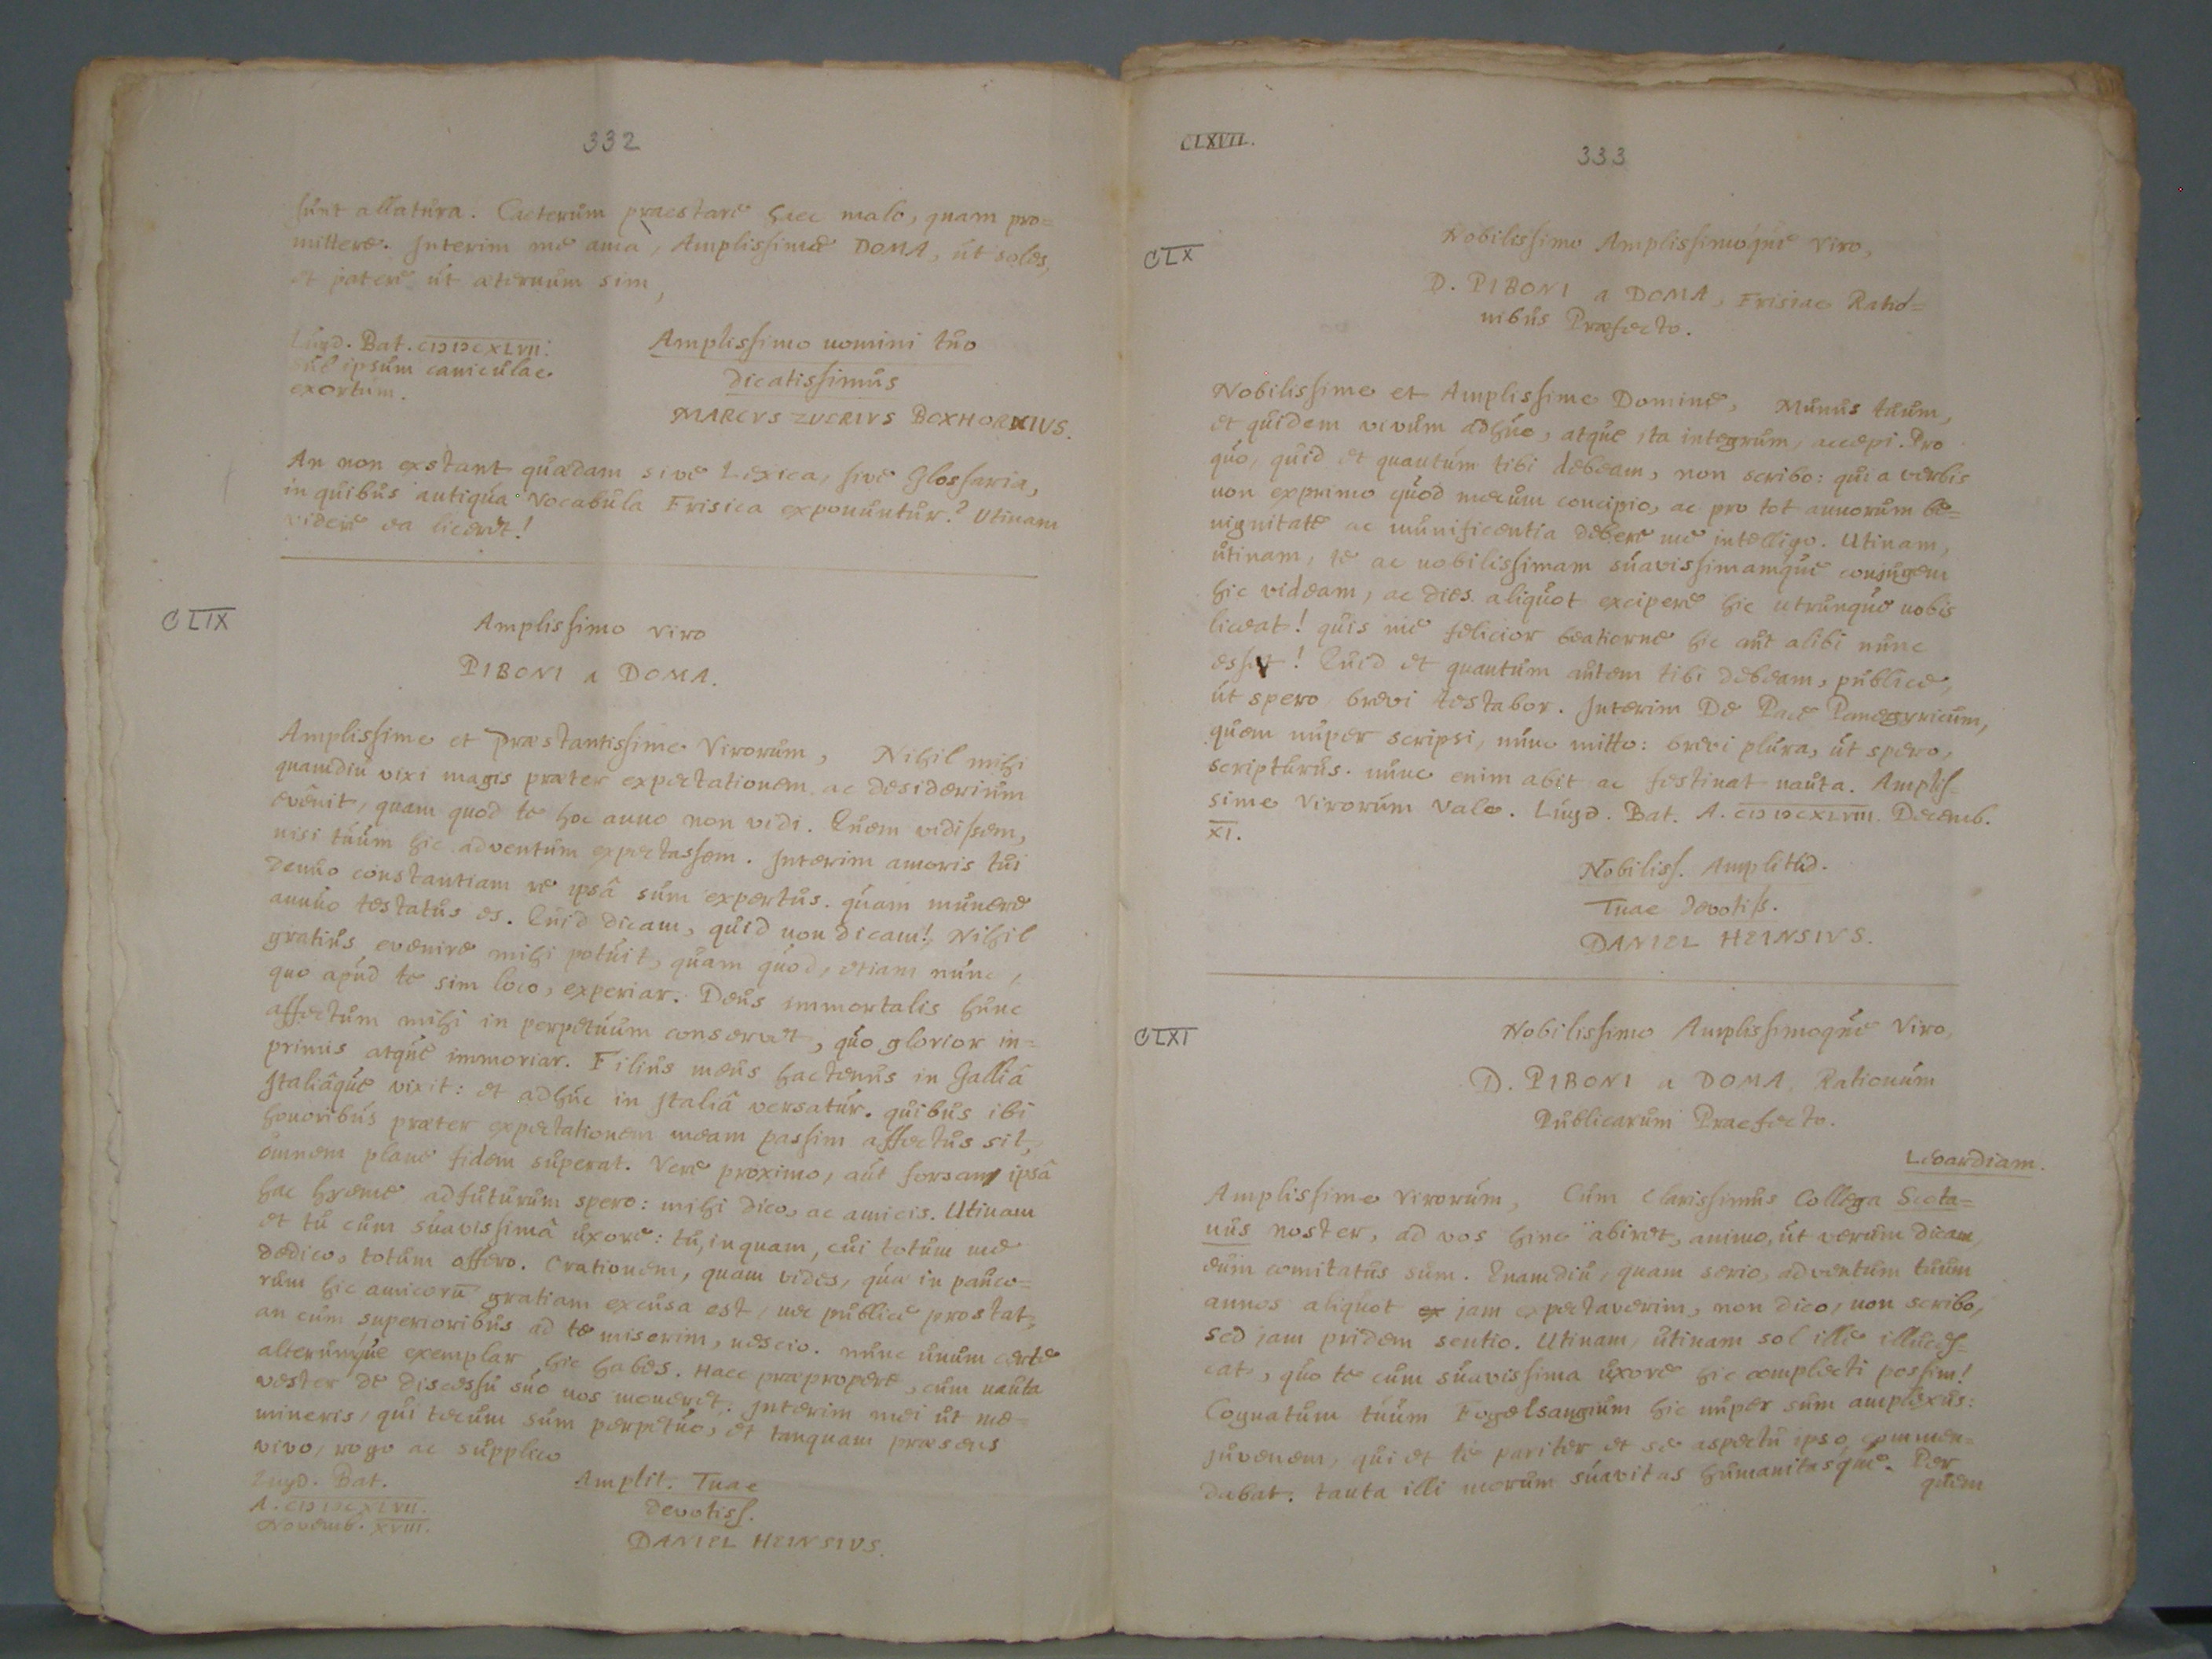 332
sunt allatura. Caeterum praestare haec malo, quam pro=
mittere. Interim me ama, Amplissime DOMA, ut soles,
et patere ut aeternum sim,
Lugd. Bat. CIↃIↃCXLVII.
sub ipsum caniculae
exortum.
Amplissimo nomini tuo
dicatissimus
MARCVS ZVERIVS BOXHORNIUS.
An non exstant quædam sive Lexica, sive Glossaria,
in quibus antiqua vocabula Frisica exponuntur? Utinam
videre ea liceret!
CLIX
Amplissimo Viro
PIBONI a DOMA.
Amplissime et præstantissime Virorum, Nihil mihi
quamdiu vixi magis præter expectationem ac desiderium
evênit, quam quod te hoc anno non vidi. Quem vidissem,
nisi tuum hic adventum expectassem. Interim amoris tui
denuo constantiam re ipsâ sum expertus. quam munere
annuo testatus es. Quid dicam, quid non dicam! Nihil
gratius evenire mihi potuit, quam quod, etiam nunc,
quo apud te sim loco, experiar. Deus immortalis hunc
affectum mihi in perpetuum conservet, quo glorior in=
primis atque immoriar. Filius meus hactenus in Galliâ
Italiâque vixit: et adhuc in Italiâ versatur. quibus ibi
honoribus præter expectationem meam passim affectus sit,
omnem plane fidem superat. Vere proximo, aut forsan ipsâ
hac hyeme adfuturum spero: mihi dico, ac amicis. Utinam
et tu cum suavissimâ uxore: tu, inquam, cui totum me
dedico, totum offero. Orationem, quam vides, quæ in pauco=
rum hic amicorū gratiam excusa est, nec publice prostat,
an cum superioribus ad te miserim, nescio. nunc unum certe
alterumque exemplar hic habes. Haec præpropere, cum nauta
vester de discessu suo nos moneret. Interim mei ut me=
mineris, qui tecum sum perpetuo, et tanquam præsens
vivo, rogo ac supplico
Lugd. Bat.
A. CIↃIↃCXLVII.
Novemb. XVIII.
Amplit. Tuae
devotiss.
DANIEL HEINSIVS.
CLXVII.
333
CLX
Nobilissimo Amplissimoque Viro,
D. PIBONI a DOMA, Frisiae Ratio=
nibus Præfecto.
Nobilissime et Amplissime Domine, Munus tuum,
et quidem vivum adhuc, atque ita integrum, accepi. Pro
quo, quid et quantum tibi debeam, non scribo: quia verbis
non exprimo quod mecum concipio, ac pro tot annorum be=
nignitate ac munificentia debere me intelligo. Utinam,
utinam, te ac nobilissimam suavissimamque conjugem
hic videam, ac dies aliquot excipere hic utrunque nobis
liceat! quis me felicior beatiorne hic aut alibi nunc
esset! Quid et quantum autem tibi debeam, publice,
ut spero brevi testabor. Interim De Pace Panegyricum,
quem nuper scripsi, nunc mitto: brevi plura, ut spero,
scripturus. nunc enim abit ac festinat nauta. Amplis=
sime Virorum Vale. Lugd. Bat. A. CIↃIↃCXLVIII. Decemb.
XI.
Nobiliss. Amplitud.
Tuae devotiss.
DANIEL HEINSIVS.
CLXI
Nobilissimo Amplissimoque Viro,
D. PIBONI a DOMA, Rationum
Publicarum Praefecto.
Leoardiam.
Amplissime Virorum, Cum Clarissimus Collega Scota=
nus noster, ad vos hinc abiret, animo, ut verum dicam
eum comitatus sum. Quamdiu, quam serio, adventum tuum
annos aliquot ex jam expectaverim, non dico, non scribo,
sed jam pridem sentio. Utinam, utinam sol ille illuces=
cat, quo te cum suavissima uxore hic complecti possim!
Cognatum tuum Fogelsangium hic nuper sum amplexus:
juvenem, qui et te pariter et se aspectu ipso commen=
dabat. tanta illi morum suavitas humanitasque. Per
quem